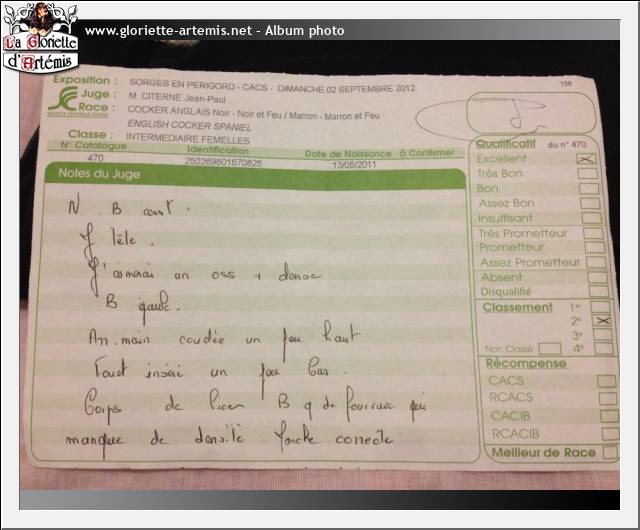 www.gloriette-artemis.net - Album photo
La Gloriette
d'Artémis
Exposition : SORGES EN PERIGORD - CACS - DIMANCHE 02 SEPTEMBRE 2012
156
Juge : M. CITERNE Jean-Paul
Race : COCKER ANGLAIS Noir - Noir et Feu / Marron - Marron et Feu
ENGLISH COCKER SPANIEL
Classe : INTERMEDIAIRE FEMELLES
N° Catalogue Identification Date de Naissance à Confirmer
470 250269801670825 13/05/2011
Notes du Juge
N . B const .
J Tête .
J'aimerais un oss + dense
B gueule .
An. main coudée un peu haut
Fouet inséré un peu bas .
Corps de lice B q de fourrure qui
manque de densité . Marche correcte
Qualificatif du n° 470
Excellent
Très Bon
Bon
Assez Bon
Insuffisant
Très Prometteur
Prometteur
Assez Prometteur
Absent
Disqualifié
Classement 1er
2e
3e
Non Classé 4e
Récompense
CACS
RCACS
CACIB
RCACIB
Meilleur de Race